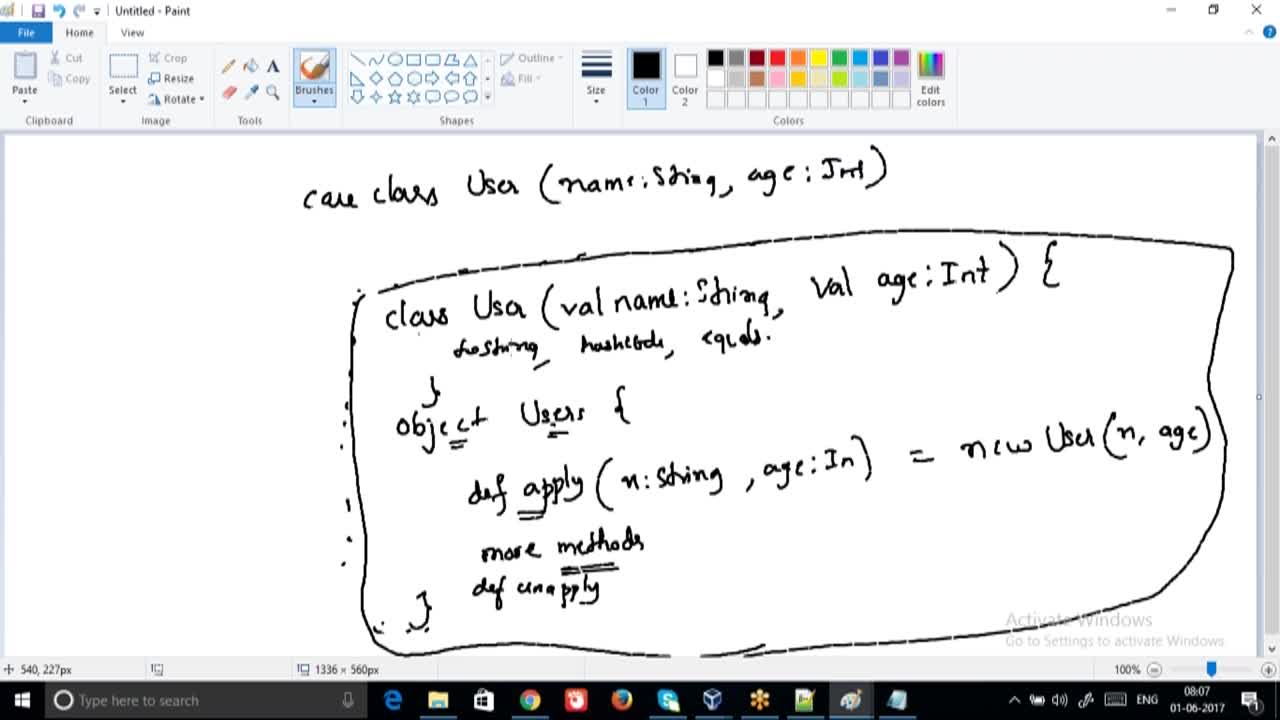 Untitled - Paint
File Home View
Paste Cut Copy Clipboard
Select Crop Resize Rotate Image
Tools
Brushes
Outline Fill Shapes
Size
Color 1 Color 2 Edit colors Colors
case class User (name: String, age: Int)
class User (val name: String, val age: Int) {
toString, hashCode, equals.
}
object Users {
def apply (n: String, age: In) = new User (n, age)
more methods
def unapply
}
Activate Windows
Go to Settings to activate Windows.
540, 227px 1336 × 560px 100%
Type here to search ENG 08:07
01-06-2017